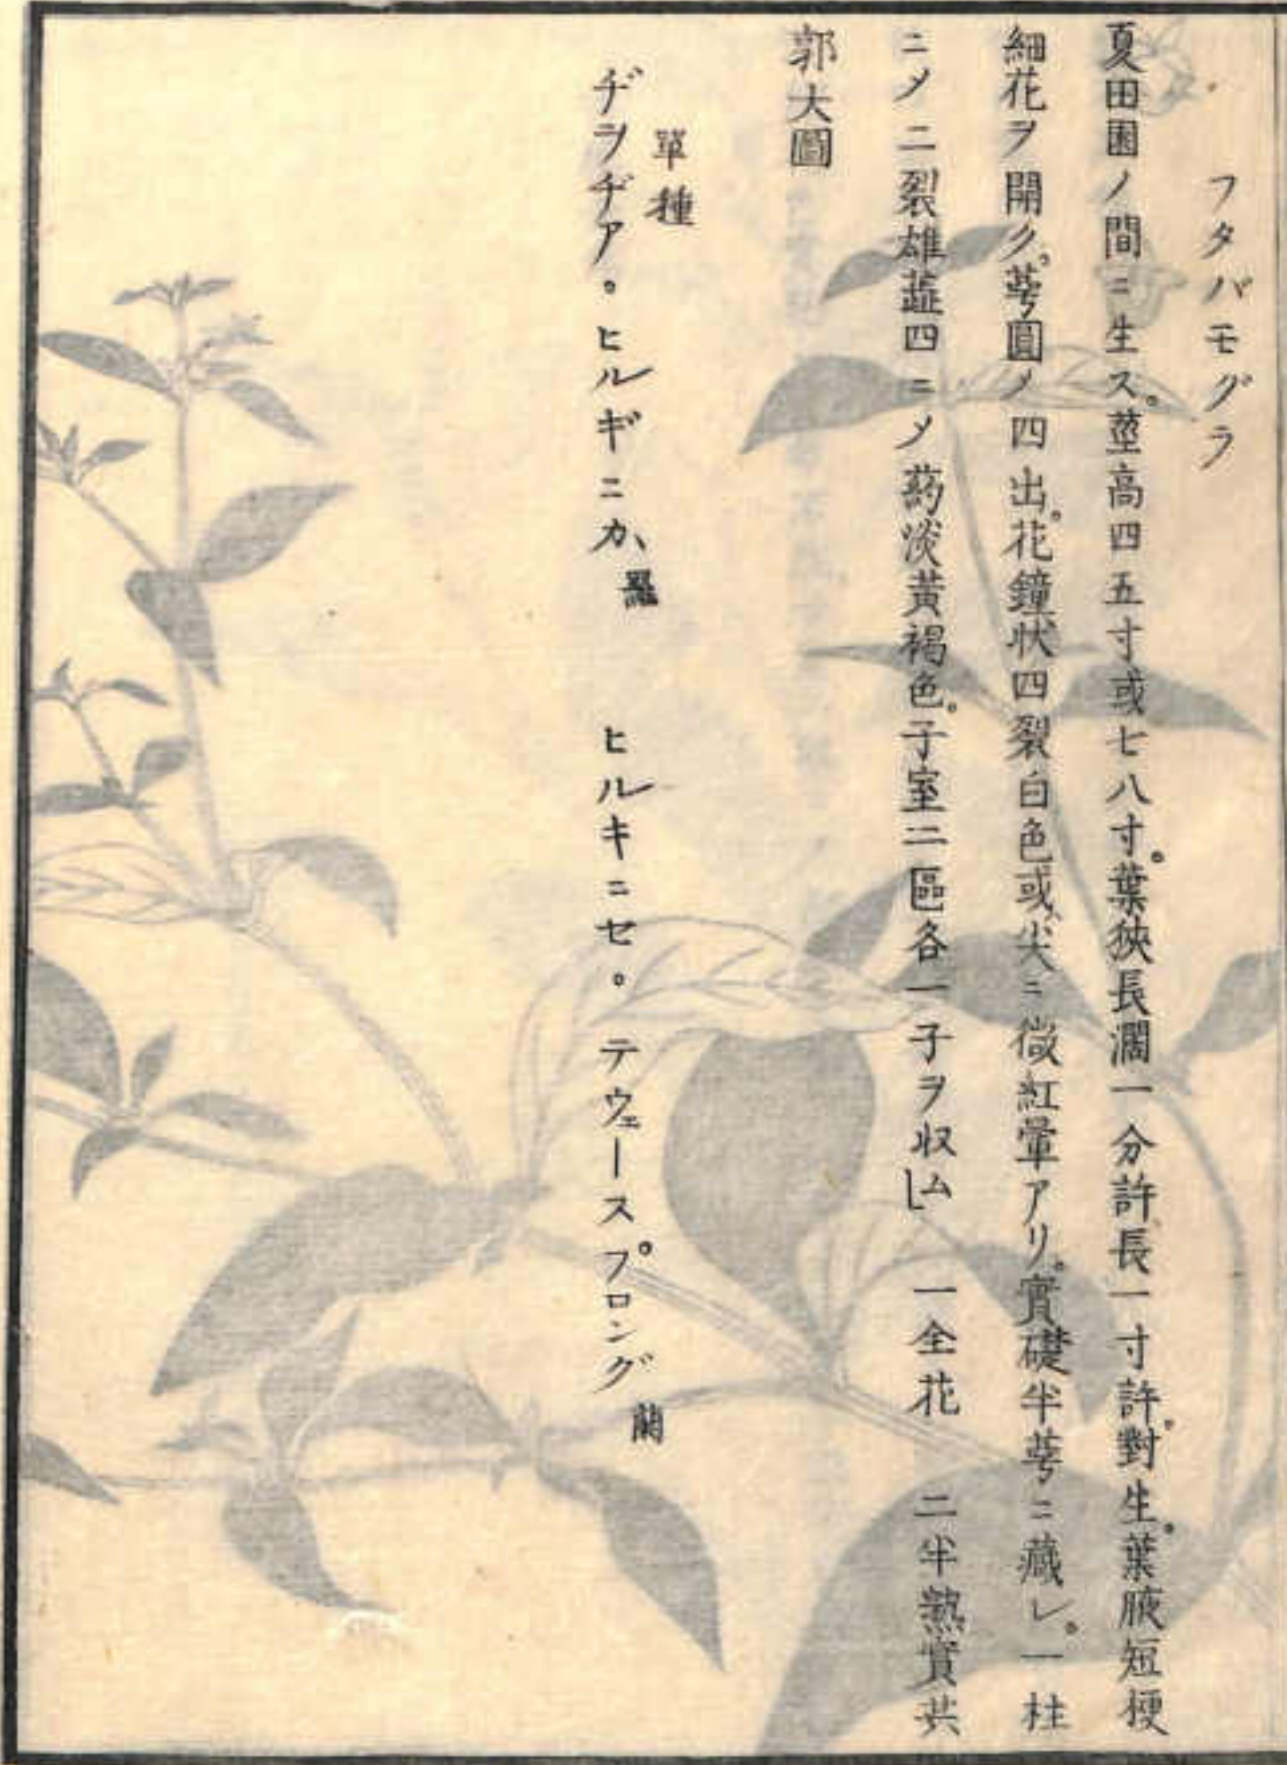 フタバモグラ
夏田園ノ間ニ生ス。莖高四五寸或七八寸。葉狹長濶一分許長一寸許。對生。葉腋短梗
細花ヲ開ク。萼圓〆四出。花鐘狀四裂白色或尖ニ微紅暈アリ。實礎半萼ニ藏レ。一柱
ニ〆二裂雄蘂四ニ〆葯淡黃褐色。子室二區各一子ヲ収ム」 一全花 二半熟實共
郭大圖
單種
ヂヲヂア。ヒルギニカ、羅 ヒルキニセ。テウェースプロング 蘭